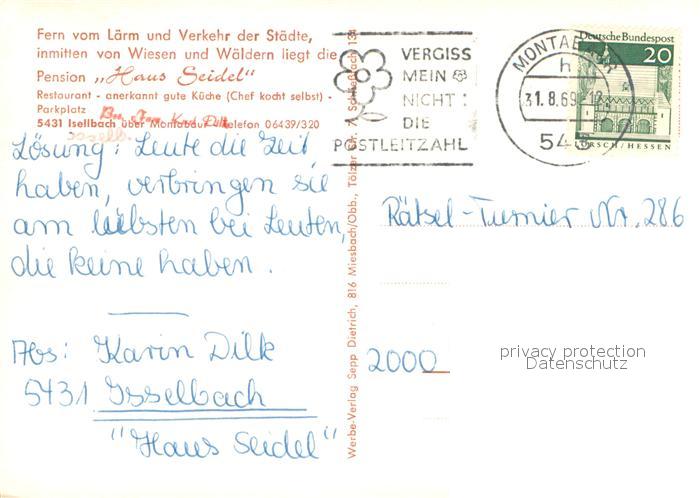 Fern vom Lärm und Verkehr der Städte,
inmitten von Wiesen und Wäldern liegt die
Pension „Haus Seidel"
Restaurant - anerkannt gute Küche (Chef kocht selbst) -
Parkplatz
5431 Isellbach über Montabaur Telefon 06439/320
Lösung: Leute die Zeit
haben, verbringen sie
am liebsten bei Leuten,
die keine haben.
Abs: Karin Dilk
5431 Isselbach
"Haus Seidel"
Werbe-Verlag Sepp Dietrich, 816 Miesbach/Obb., Tölzer Str.
VERGISS
MEIN
NICHT!
DIE
POSTLEITZAHL
MONTABAUR
h
31.8.69
543
Deutsche Bundespost
20
LORSCH/HESSEN
Rätsel-Turnier Nr. 286
2000
privacy protection
Datenschutz